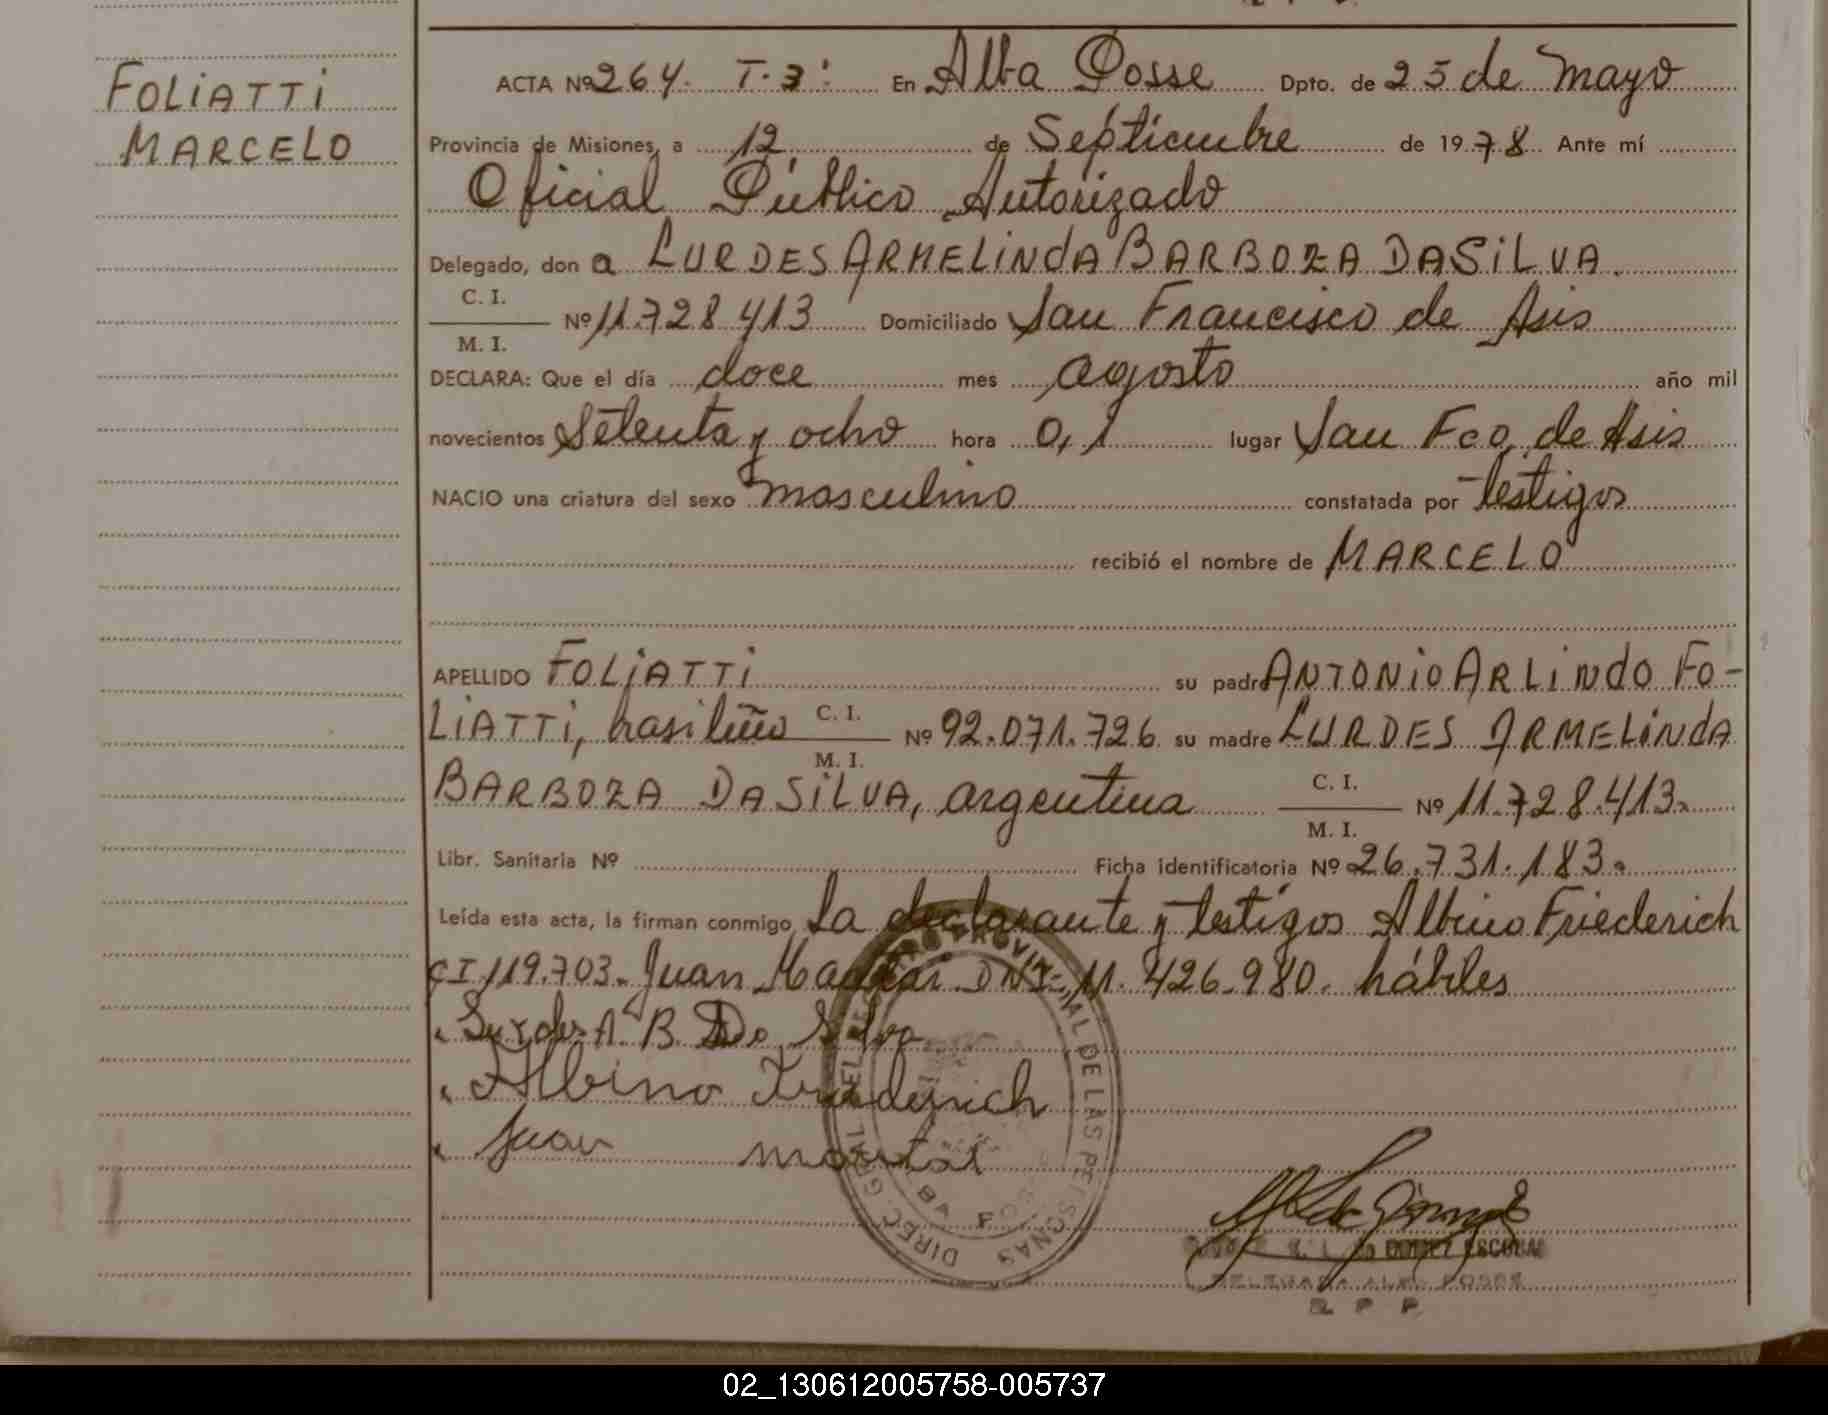 FOLIATTI
MARCELO
ACTA Nº 264. T. 3: En Alba Posse Dpto. de 25 de Mayo
Provincia de Misiones, a 12 de Septiembre de 1978 Ante mí
Oficial Público Autorizado
Delegado, don a LURDES ARMELINDA BARBOZA DA SILVA.
C. I.
Nº 11.728.413 Domiciliado San Francisco de Asis
M. I.
DECLARA: Que el día doce mes agosto año mil
novecientos Setenta y ocho hora 0,1 lugar San Fco. de Asis
NACIO una criatura del sexo masculino constatada por testigos
recibió el nombre de MARCELO
APELLIDO FOLIATTI su padre ANTONIO ARLINDO FO-
LIATTI, brasileño C. I. Nº 92.071.726 su madre LURDES ARMELINDA
M. I.
BARBOZA DA SILVA, argentina C. I. Nº 11.728.413.
M. I.
Libr. Sanitaria Nº Ficha identificatoria Nº 26.731.183.
Leída esta acta, la firman conmigo la declarante y testigos Albino Friederich
CI 119.703. Juan DNI. 11.426.980. hábiles
Lurdes A. B. Da Silva
Albino Friederich
Juan
DIREC. GRAL. DEL REGISTRO PROVINCIAL DE LAS PERSONAS
GOMEZ ESCOBAR
DELEGADA ALBA POSSE
R. P. P.
02_130612005758-005737